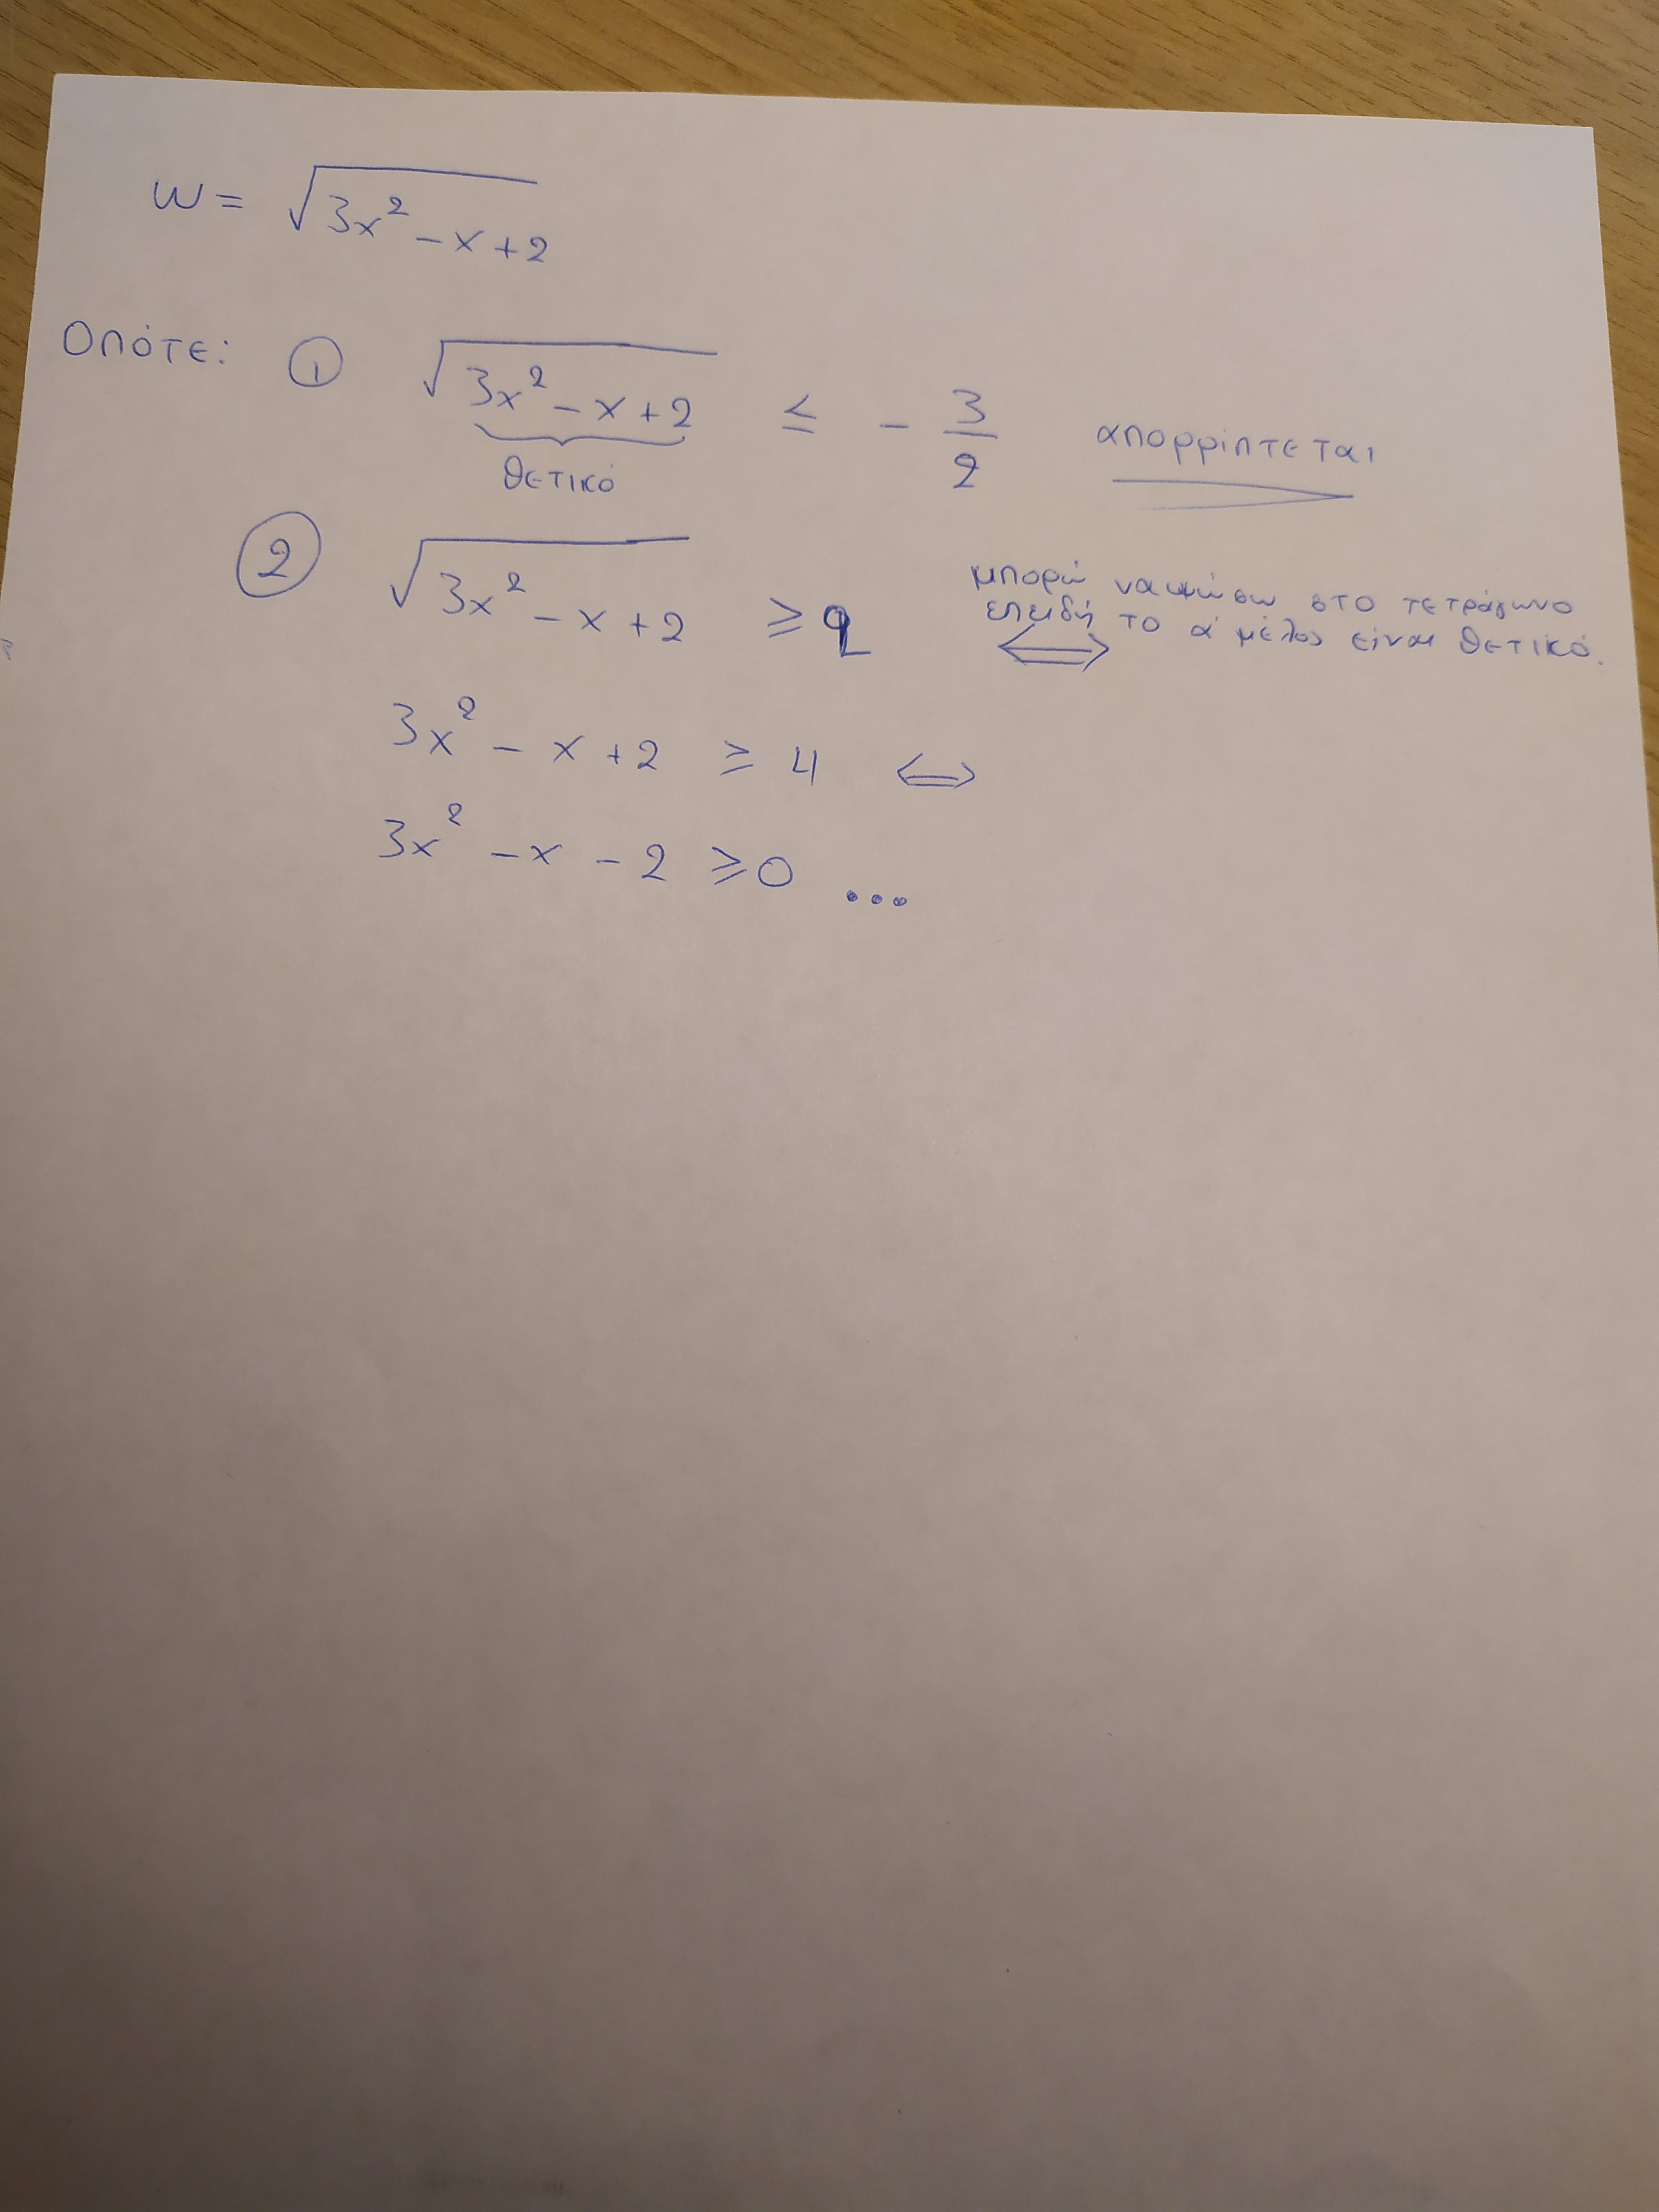 w = √(3x² - x + 2)
Οπότε: ① √(3x² - x + 2) ≤ - 3/2 απορρίπτεται
θετικό
② √(3x² - x + 2) ≥ 2 μπορώ να υψώσω στο τετράγωνο
⟺ επειδή το α' μέλος είναι θετικό.
3x² - x + 2 ≥ 4 ⟺
3x² - x - 2 ≥ 0 ...